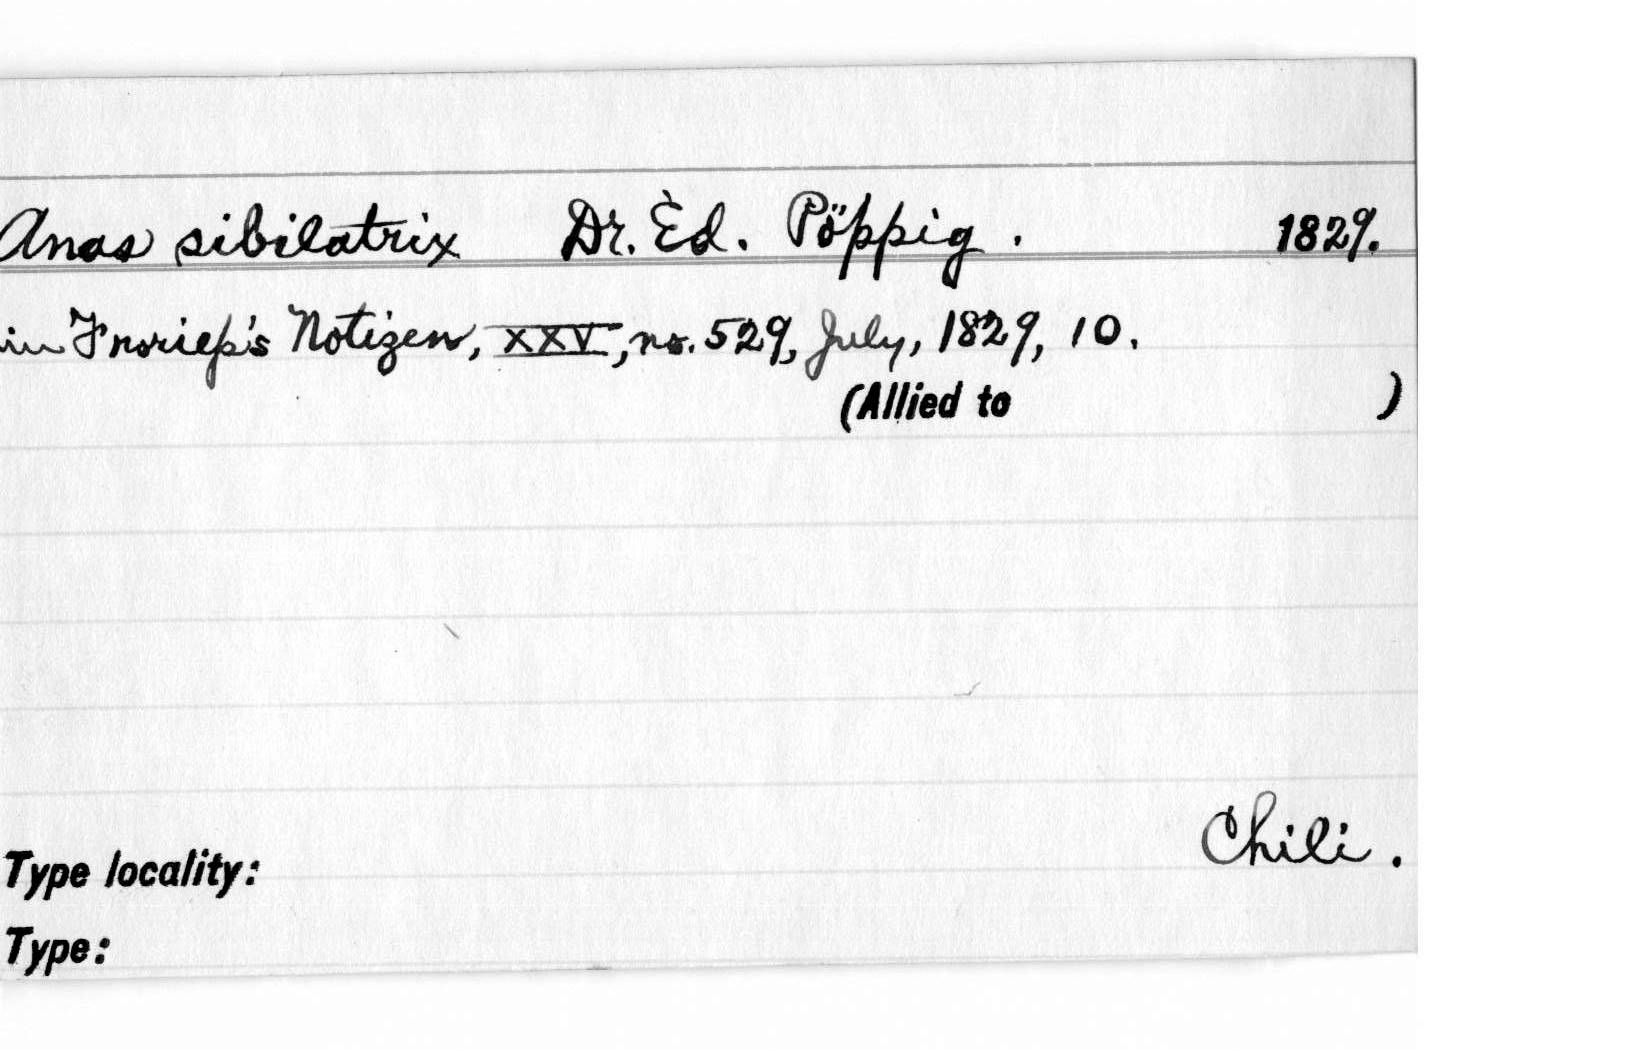 Anas sibilatrix Dr. Ed. Pöppig. 1829.
in Froriep's Notizen, XXV, no. 529, July, 1829, 10.
(Allied to )
Chili.
Type locality:
Type: